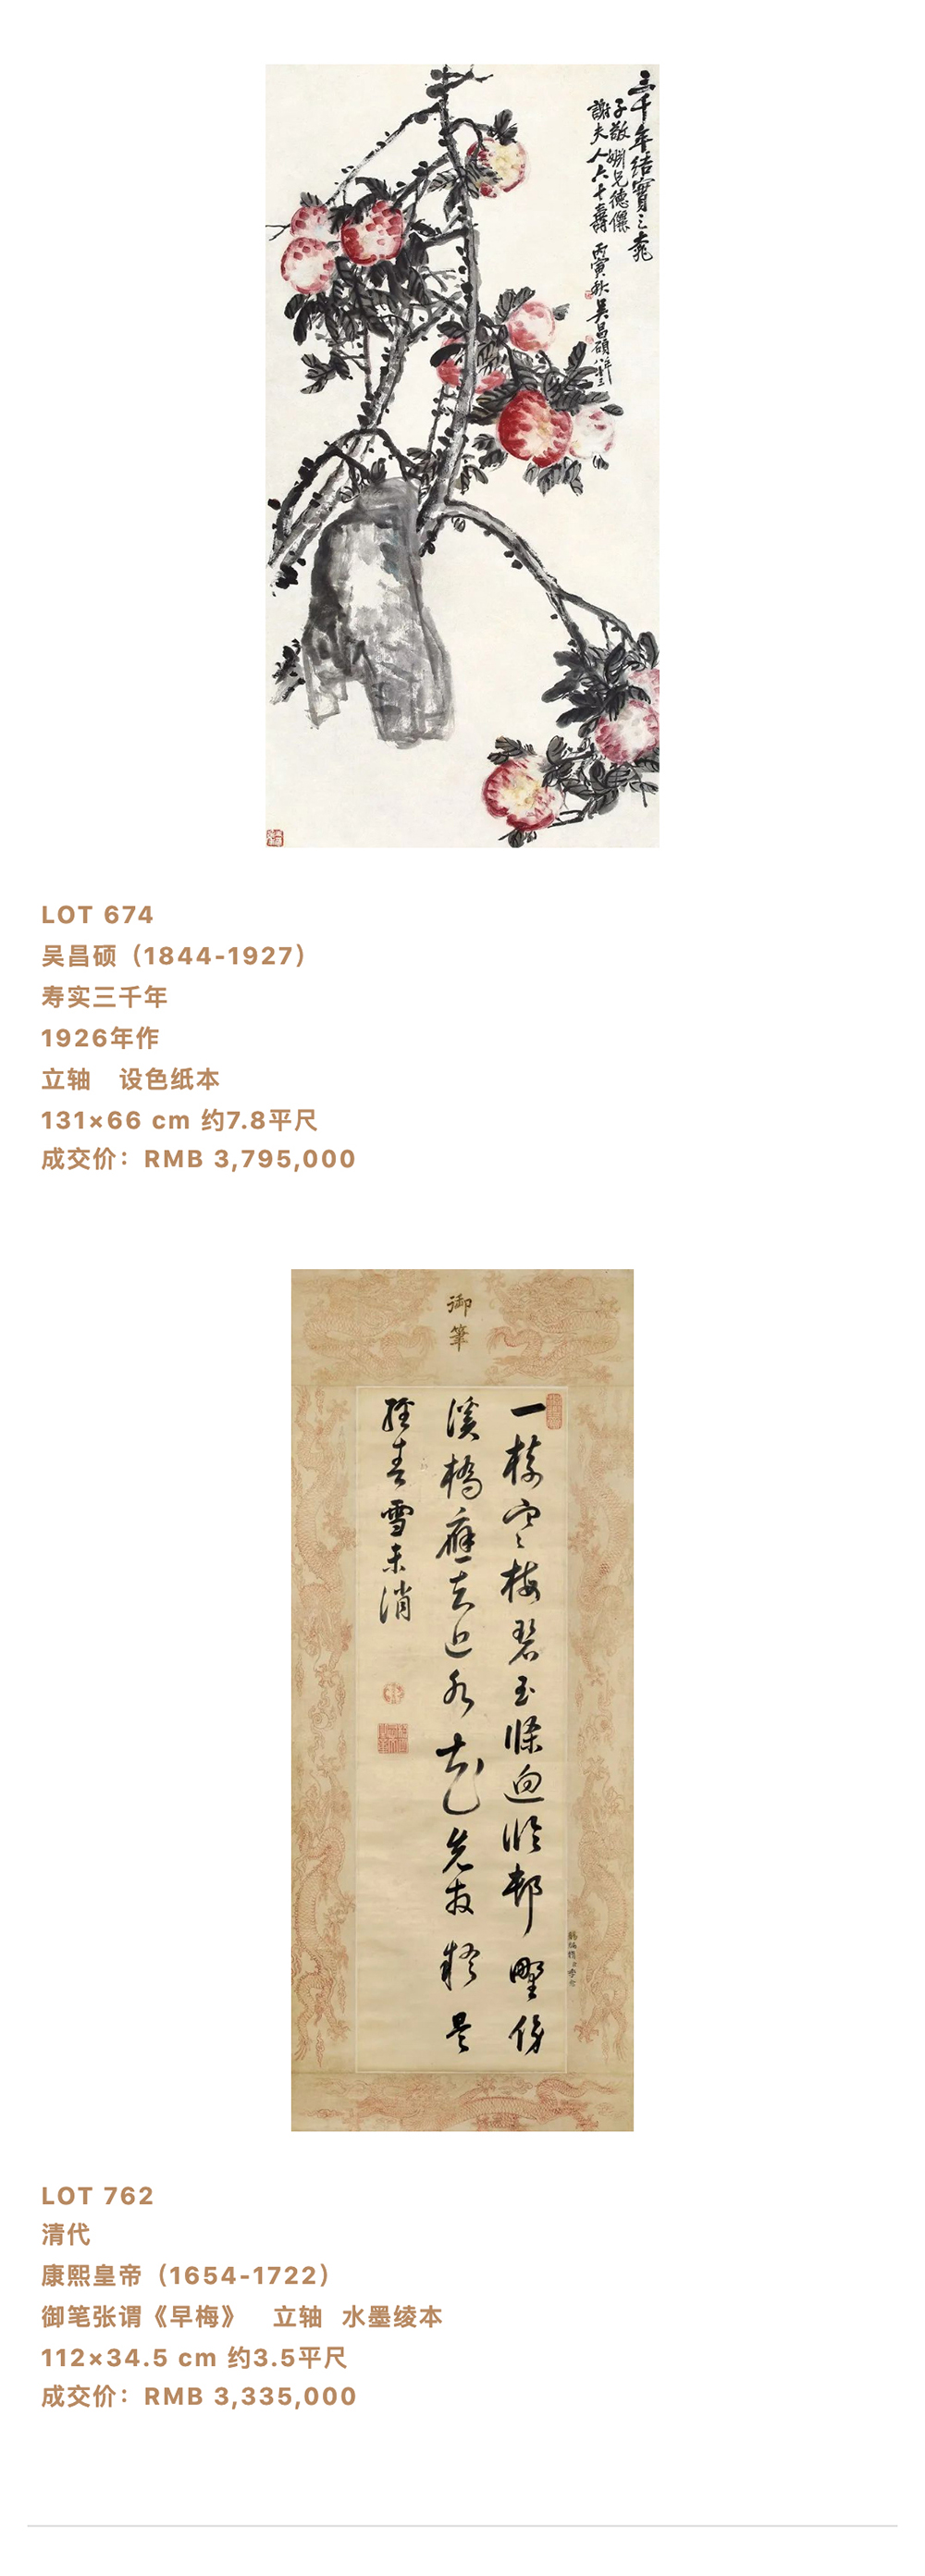 三千年結實之桃
子敬姻兄德儷
謝夫人六十壽 丙寅秋 吴昌碩
LOT 674
吴昌硕（1844-1927）
寿实三千年
1926年作
立轴 设色纸本
131×66 cm 约7.8平尺
成交价：RMB 3,795,000
御筆
一樹寒梅碧玉條迥臨邨野傍
溪橋應去近水花先發疑是
經春雪未消
LOT 762
清代
康熙皇帝（1654-1722）
御笔张谓《早梅》 立轴 水墨绫本
112×34.5 cm 约3.5平尺
成交价：RMB 3,335,000